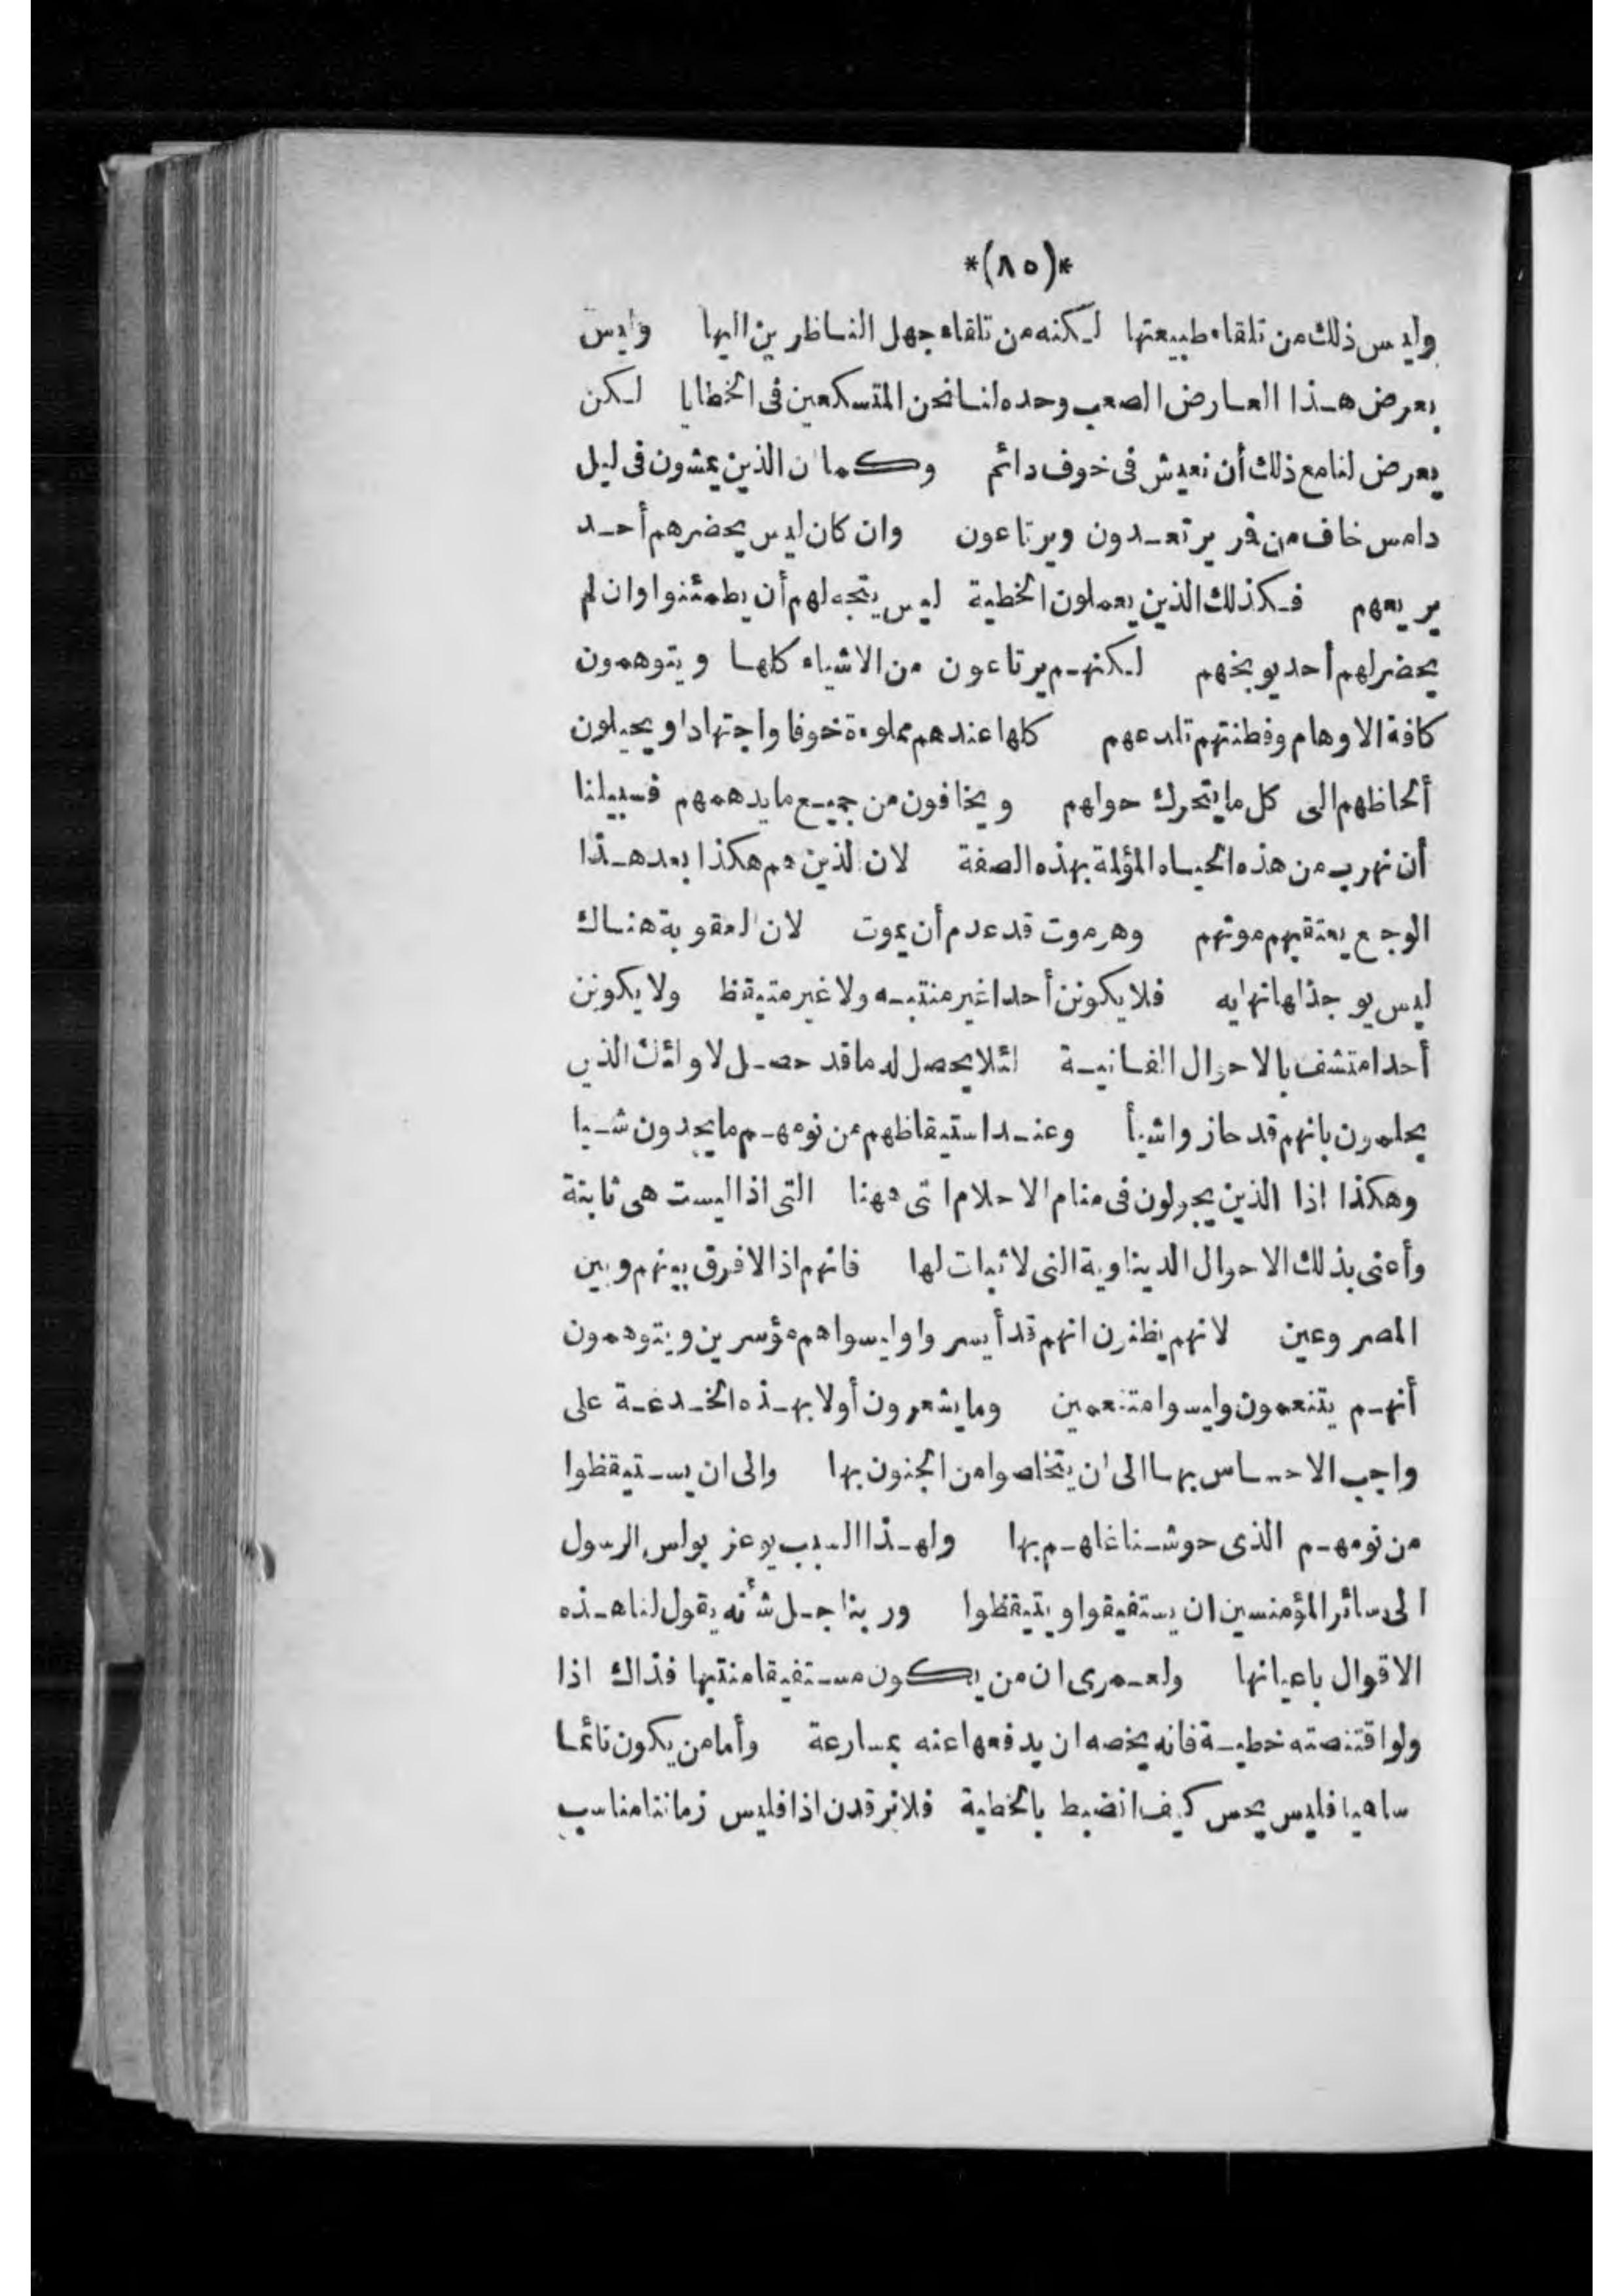 *(٨٥)*
وليس ذلك من تلقاء طبيعتها لكنه من تلقاء جهل الناظرين اليها وليس
يعرض هذا العارض الصعب وحده لنا نحن المتسكعين فى الخطايا لكن
يعرض لنا مع ذلك أن نعيش فى خوف دائم وكما ان الذين يمشون فى ليل
دامس خاف من قر يرتعدون ويرتاعون وان كان ليس يحضرهم أحد
يريعهم فكذلك الذين يعملون الخطية ليس يتجه لهم أن يطمئنوا وان لم
يحضر لهم أحد يوبخهم لكنهم يرتاعون من الاشياء كلها ويتوهمون
كافة الاوهام وفطنتهم تلدعهم كلها عندهم مملوءة خوفا واجتهادا ويحيلون
ألحاظهم الى كل ما يتحرك حولهم ويخافون من جميع ما يدهمهم فسبيلنا
أن نهرب من هذه الحياه المؤلمة بهذه الصفة لان الذين هم هكذا بعد هذا
الوجع يعتقبهم موتهم وهو موت قد عدم أن يموت لان العقوبة هناك
ليس يوجد لها نهايه فلا يكونن أحدا غير منتبه ولا غير متيقظ ولا يكونن
أحدا متشف بالاحوال الفانية لئلا يحصل له ما قد حصل لاولئك الذين
يحلمون بانهم قد حازوا شيأ وعند استيقاظهم من نومهم ما يجدون شيا
وهكذا اذا الذين يجولون فى منام الاحلام التى ههنا التى اذا ليست هى ثابتة
وأعنى بذلك الاحوال الديناوية التى لا ثبات لها فانهم اذا لا فرق بينهم وبين
المصروعين لانهم يظنون انهم قد أيسروا وليسوا هم مؤسرين ويتوهمون
أنهم يتنعمون وليسوا متنعمين وما يشعرون أولا بهذه الخدعة على
واجب الاحساس بها الى ان يتخلصوا من الجنون بها والى ان يستيقظوا
من نومهم الذى حوشنا غاهم بها ولهذا السبب يوعز بولس الرسول
الى سائر المؤمنين ان يستفيقوا ويتيقظوا وربنا جل شأنه يقول لنا هذه
الاقوال باعيانها ولعمرى ان من يكون مستفيقا منتبها فذاك اذا
ولو اقتنصته خطية فانه يخصه ان يدفعها عنه بمسارعة وأما من يكون نائما
ساهيا فليس يحس كيف انضبط بالخطية فلا نرقدن اذا فليس زماننا مناسب